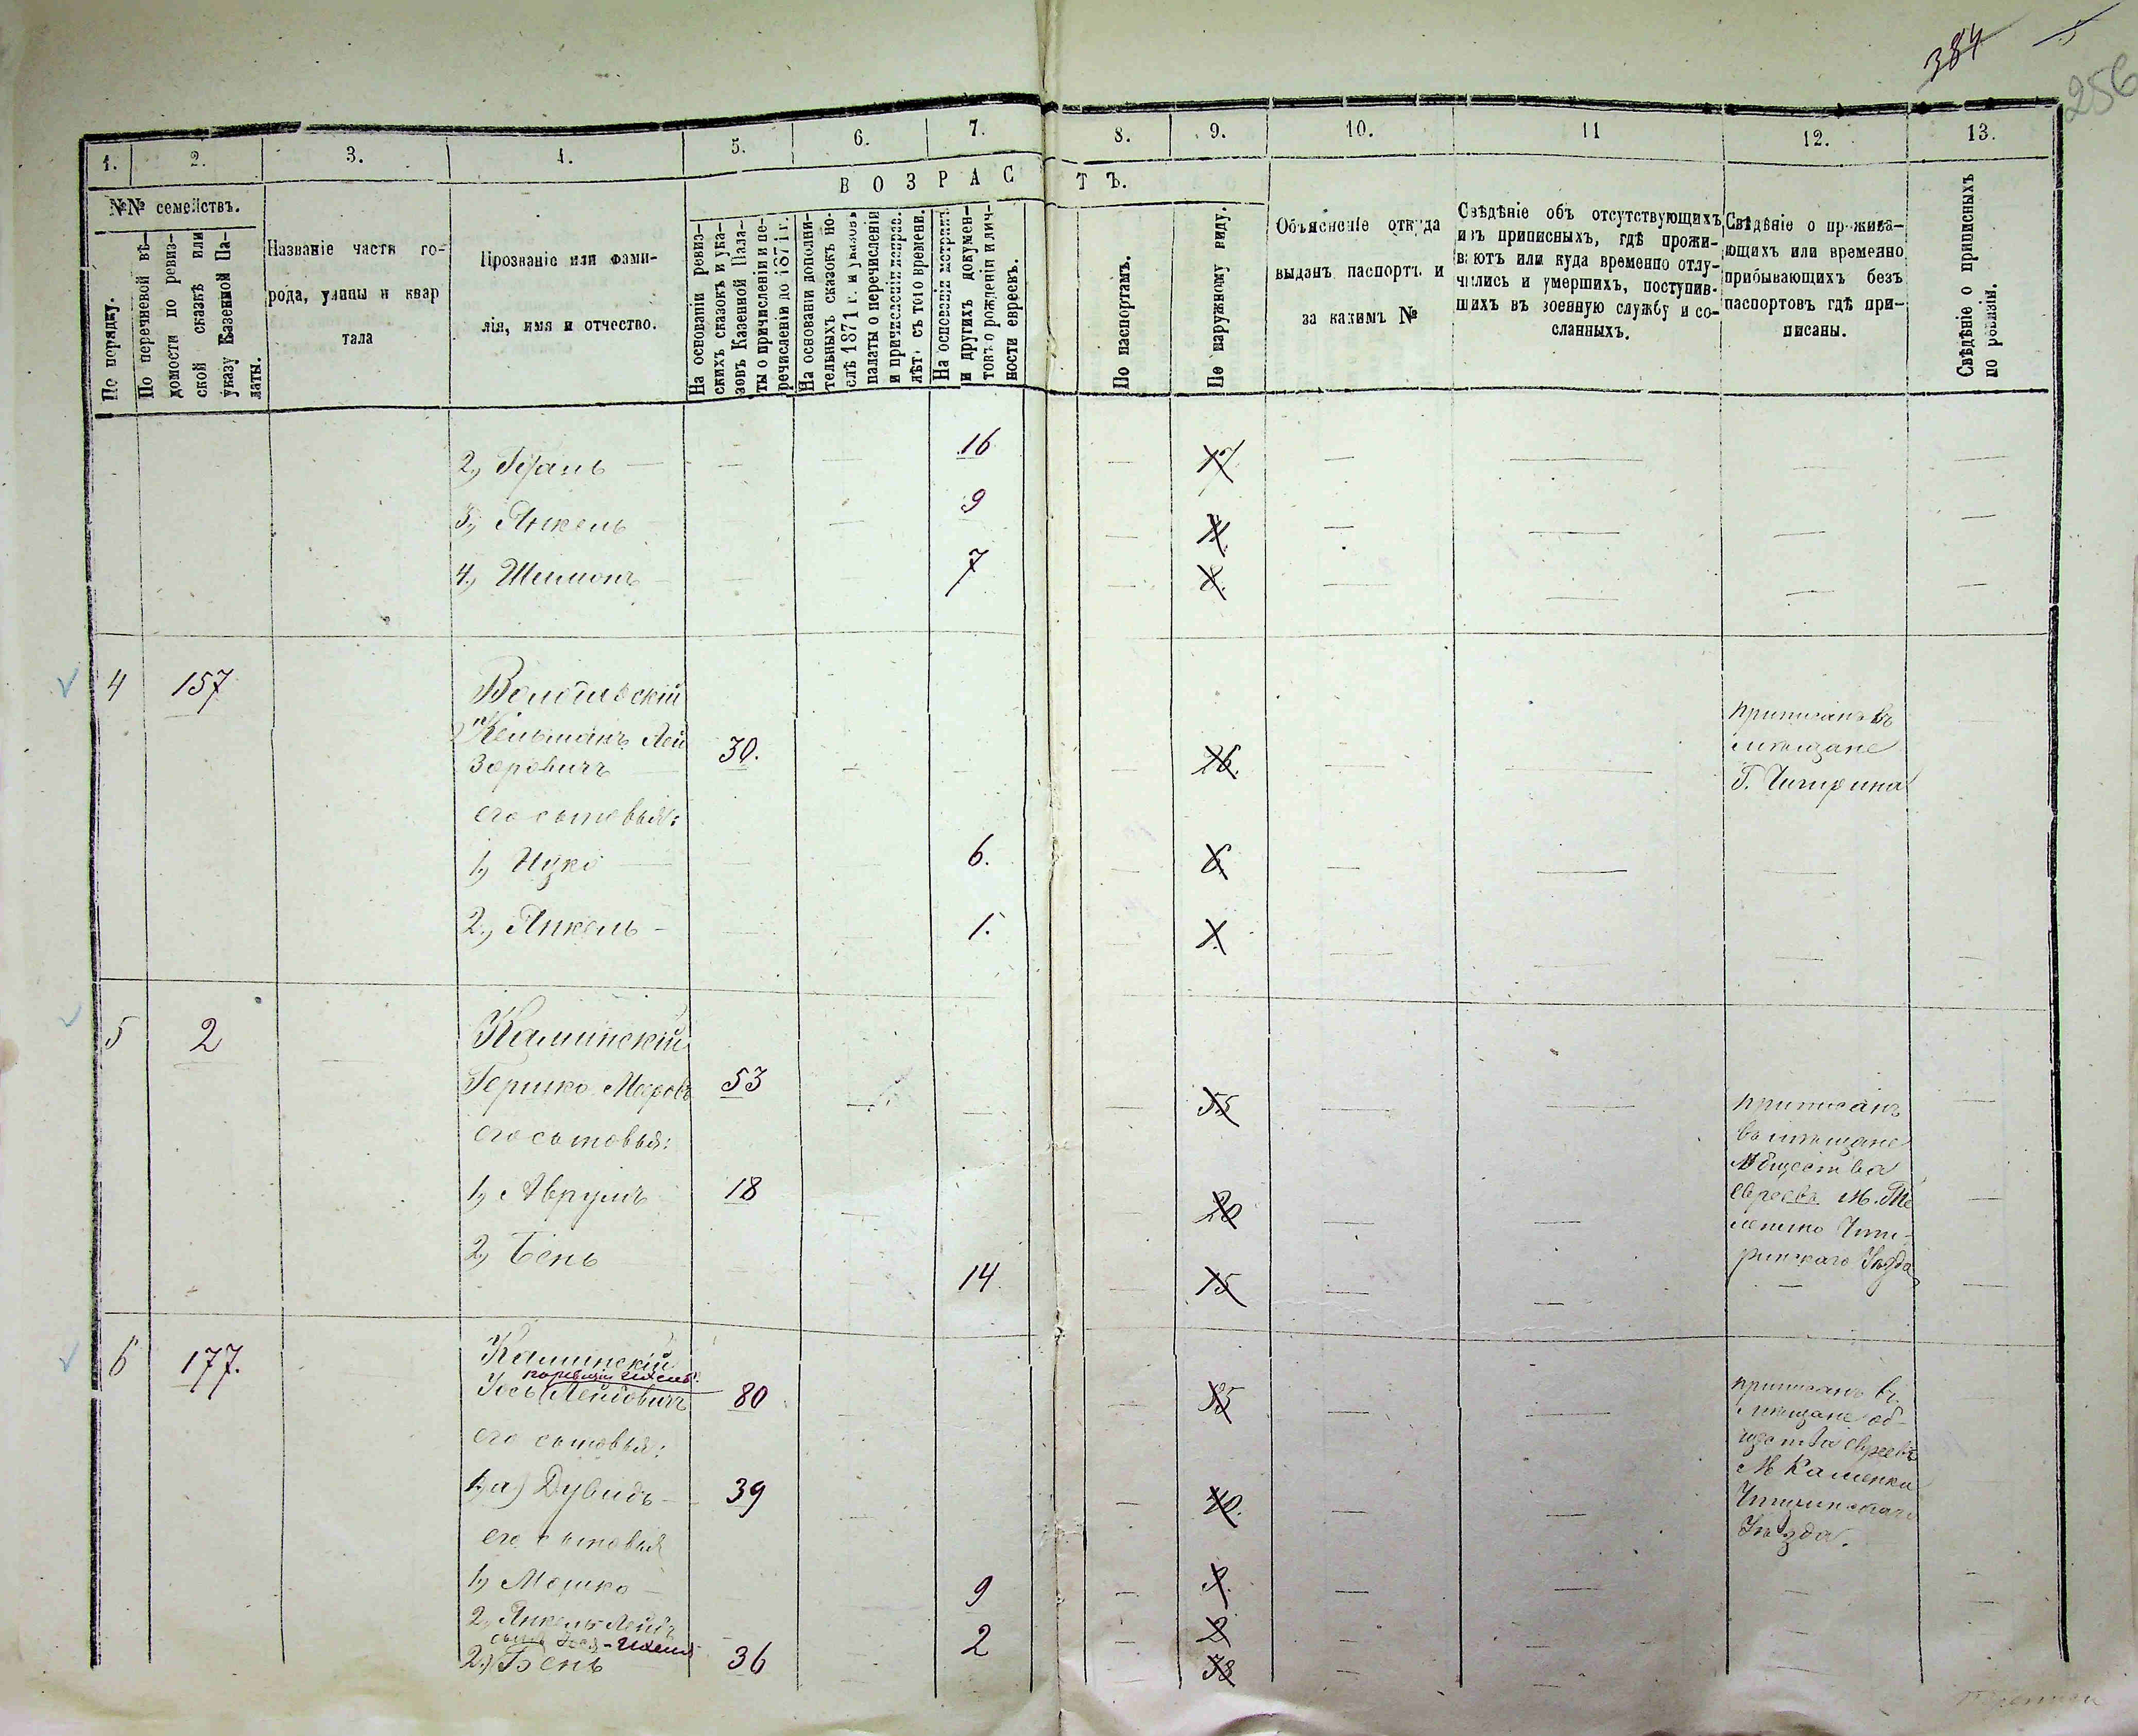 384
5
256
1. 2. 3. 4. 5. 6. 7. 8. 9. 10. 11 12. 13.
ВОЗРАСТЪ.
№№ семействъ.
По порядку.
По перечневой вѣ-
домости по ревиз-
ской сказкѣ или
указу Казенной Па-
латы.
Названіе части го-
рода, улицы и квар
тала
Прозваніе или фами-
лія, имя и отчество.
На основаніи ревиз-
скихъ сказокъ и ука-
зовъ Казенной Пала-
ты о причисленіи и пе-
речисленіи до 1871 г.
На основаніи дополни-
тельныхъ сказокъ по-
слѣ 1871 г. и указовъ
палаты о перечисленіи
и причисленіи неправ.
лѣтъ съ того времени.
На основаніи метрикъ
и другихъ докумен-
товъ о рожденіи и лич-
ности евреевъ.
По паспортамъ.
По наружному виду.
Объясненіе откуда
выданъ паспортъ и
за какимъ №
Свѣдѣніе объ отсутствующихъ
изъ приписныхъ, гдѣ прожи-
ваютъ или куда временно отлу-
чились и умершихъ, поступив-
шихъ въ военную службу и со-
сланныхъ.
Свѣдѣніе о прожива-
ющихъ или временно
прибывающихъ безъ
паспортовъ гдѣ при-
писаны.
Свѣдѣніе о приписныхъ
по ревизіи.
2, — — — 16 — 17 — — — —
3, Янкель — 9 — 11 — — — —
4, Шимонъ — 7 — 8 — — — —
4 157
Кельманъ Лей
зоровичъ — 30. — — — 26. — —
приписанъ въ
мѣщане
г. Чигирина
его сыновья:
1, Ицко — — — 6. — 6 — — —
2, Янкель — — — 1. — 1 — — — —
5 2 — Каминскій
Гершко Мееров 53 — — — 55 — — —
приписанъ
въ мѣщане
Общества
евреевъ М.
Чиги-
ринскаго Уѣзда
его сыновья:
1, Аврумъ 18 — 20 — — —
2, Бень — — 14 — 15 — — — —
6 177. — Каминскій
Лейбовичъ 80 — — — 85 — —
приписанъ въ
мѣщане об-
щества евреевъ
М Каменки
Чигиринскаго
Уѣзда.
его сыновья:
1, а) Дувидъ — 39 — — — 40. — —
его сыновья
1, Мошко — 9 — 9. — — — —
2, Янкель Лейбъ — 2 — 2 — — — —
2.) Бень 36 — — — 38 — — — —